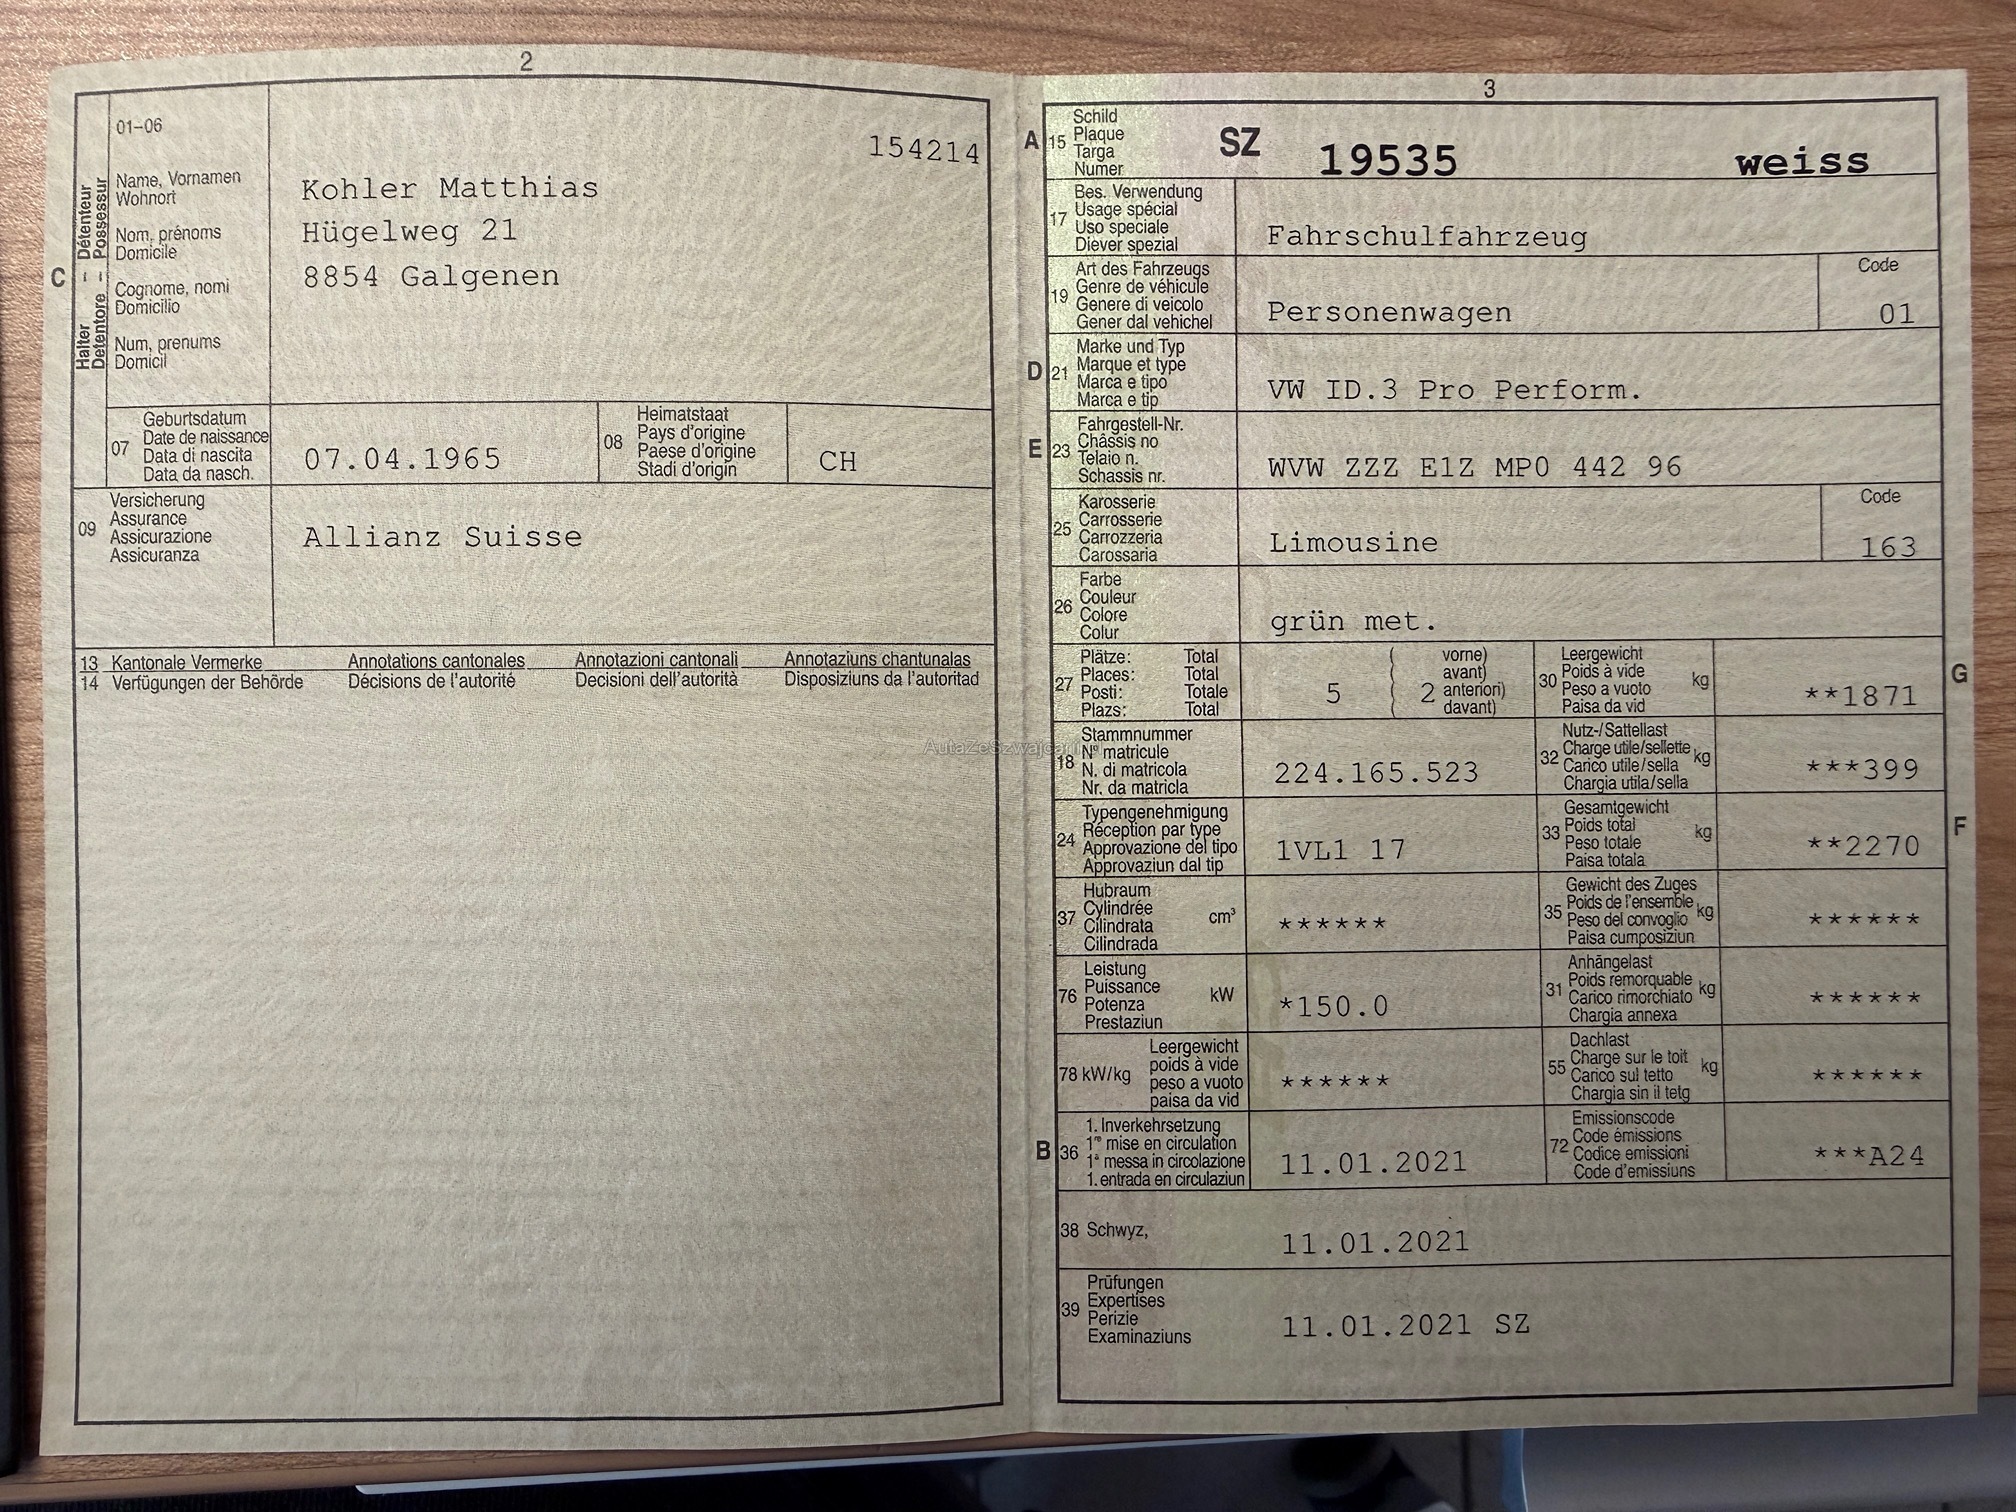 2
01-06
154214
Halter – Détenteur
Detentore – Possessur
C
Name, Vornamen
Wohnort
Nom, prénoms
Domicile
Cognome, nomi
Domicilio
Num, prenums
Domicil
Kohler Matthias
Hügelweg 21
8854 Galgenen
07
Geburtsdatum
Date de naissance
Data di nascita
Data da nasch.
07.04.1965
08
Heimatstaat
Pays d'origine
Paese d'origine
Stadi d'origin
CH
09
Versicherung
Assurance
Assicurazione
Assicuranza
Allianz Suisse
13 Kantonale Vermerke Annotations cantonales Annotazioni cantonali Annotaziuns chantunalas
14 Verfügungen der Behörde Décisions de l'autorité Decisioni dell'autorità Disposiziuns da l'autoritad
3
A 15
Schild
Plaque
Targa
Numer
SZ 19535 weiss
17
Bes. Verwendung
Usage spécial
Uso speciale
Diever spezial
Fahrschulfahrzeug
19
Art des Fahrzeugs
Genre de véhicule
Genere di veicolo
Gener dal vehichel
Personenwagen
Code
01
D 21
Marke und Typ
Marque et type
Marca e tipo
Marca e tip
VW ID.3 Pro Perform.
E 23
Fahrgestell-Nr.
Châssis no
Telaio n.
Schassis nr.
WVW ZZZ E1Z MP0 442 96
25
Karosserie
Carrosserie
Carrozzeria
Carossaria
Limousine
Code
163
26
Farbe
Couleur
Colore
Colur
grün met.
27
Plätze: Total
Places: Total
Posti: Totale
Plazs: Total
5
( vorne)
( avant)
( 2 anteriori)
( davant)
30
Leergewicht
Poids à vide
Peso a vuoto
Paisa da vid
kg
**1871
G
18
Stammnummer
N° matricule
N. di matricola
Nr. da matricla
224.165.523
32
Nutz-/Sattellast
Charge utile/sellette
Carico utile/sella
Chargia utila/sella
kg
***399
24
Typengenehmigung
Réception par type
Approvazione del tipo
Approvaziun dal tip
1VL1 17
33
Gesamtgewicht
Poids total
Peso totale
Paisa totala
kg
**2270
F
37
Hubraum
Cylindrée
Cilindrata
Cilindrada
cm³
******
35
Gewicht des Zuges
Poids de l'ensemble
Peso del convoglio
Paisa cumposiziun
kg
******
76
Leistung
Puissance
Potenza
Prestaziun
kW
*150.0
31
Anhängelast
Poids remorquable
Carico rimorchiato
Chargia annexa
kg
******
78 kW/kg
Leergewicht
poids à vide
peso a vuoto
paisa da vid
******
55
Dachlast
Charge sur le toit
Carico sul tetto
Chargia sin il tetg
kg
******
B 36
1. Inverkehrsetzung
1re mise en circulation
1a messa in circolazione
1. entrada en circulaziun
11.01.2021
72
Emissionscode
Code émissions
Codice emissioni
Code d'emissiuns
***A24
38 Schwyz,
11.01.2021
39
Prüfungen
Expertises
Perizie
Examinaziuns
11.01.2021 SZ